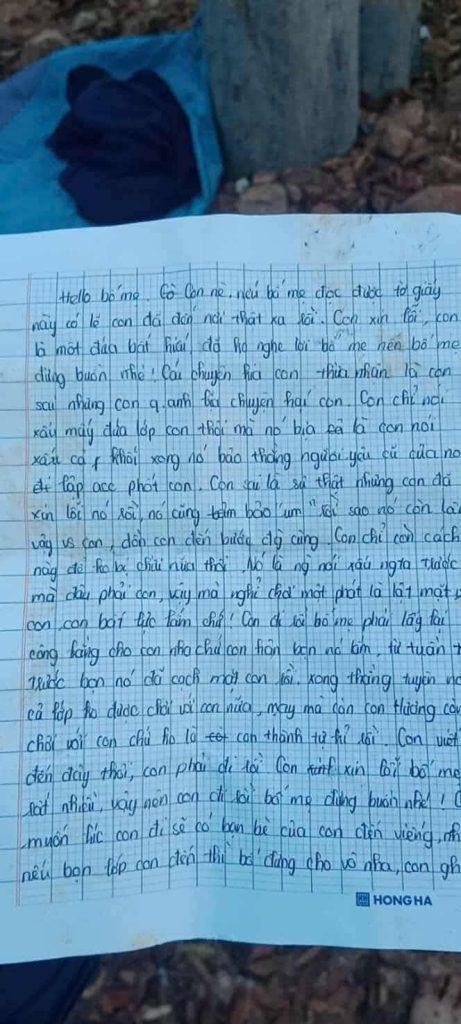 Hello bố mẹ. Cô Con nè, nếu bố mẹ đọc được tờ giấy
này có lẽ con đã đến nơi thật xa rồi. Con xin lỗi, con
là một đứa bất hiếu, đã ko nghe lời bố mẹ nên bố mẹ
đừng buồn nhé! Cái chuyện kia con thừa nhận là con
sai nhưng con q.anh bịa chuyện hại con. Con chỉ nói
xấu mấy đứa lớp con thôi mà nó bịa là con nói
xấu cả khối xong nó bảo thằng người yêu cũ của nó
lập acc phốt con. Con sai là sự thật nhưng con đã
xin lỗi nó rồi, nó cũng bảo "ừm" rồi sao nó còn làm
vậy vs con, dồn con đến bước đg cùng. Con chỉ còn cách
này để ko bị chửi nữa thôi. Nó là ng nói xấu ngta trước
mà đâu phải con, vậy mà nghỉ chơi một phát là lật mặt
con, con bất lực lắm chứ! Con đi rồi bố mẹ phải lấy lại
công bằng cho con nha chứ con hận bọn nó lắm, từ tuần
trước bọn nó đã cạch mặt con rồi, xong thằng tuyên
cả lớp ko được chơi với con nữa, may mà còn con Hương còn
chơi với con chứ ko là con thành tự kỉ rồi. Con viết
đến đây thôi, con phải đi rồi. Con xin lỗi bố mẹ
rất nhiều, vậy nên con đi rồi bố mẹ đừng buồn nhé!
muốn lúc con đi sẽ có bạn bè của con đến viếng,
nếu bạn lớp con đến thì bố đừng cho vô nha, con
HONG HA